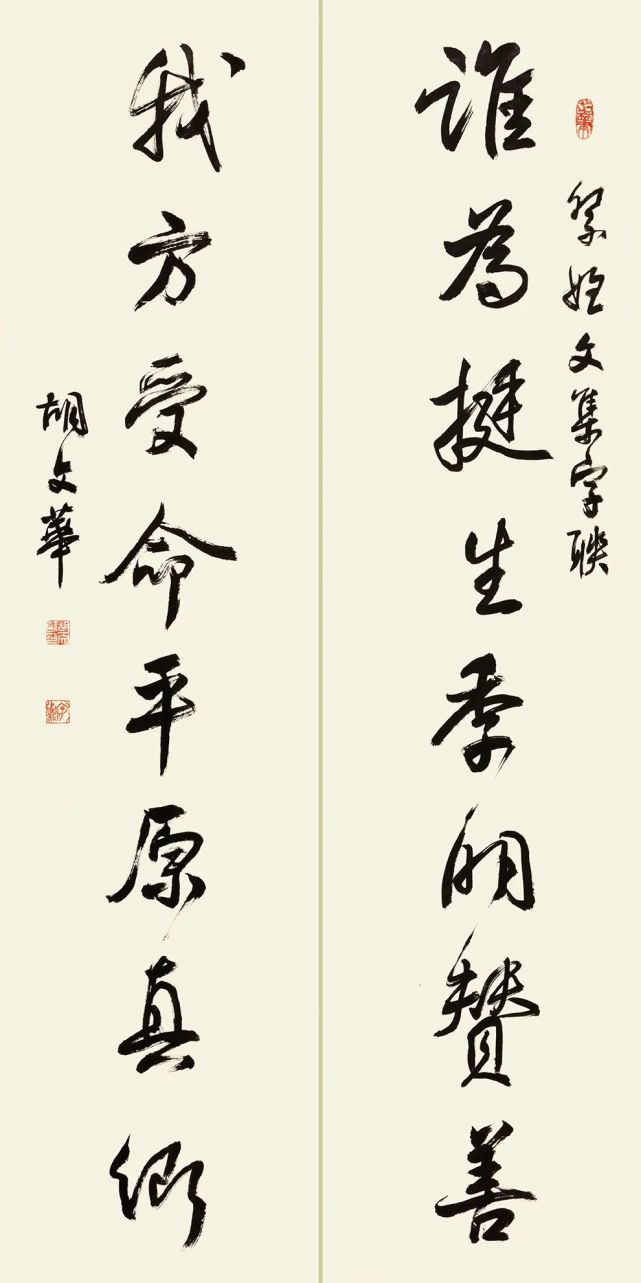 祭姪文集字聯
誰為挺生季明贊善
我方受命平原真卿
胡文華